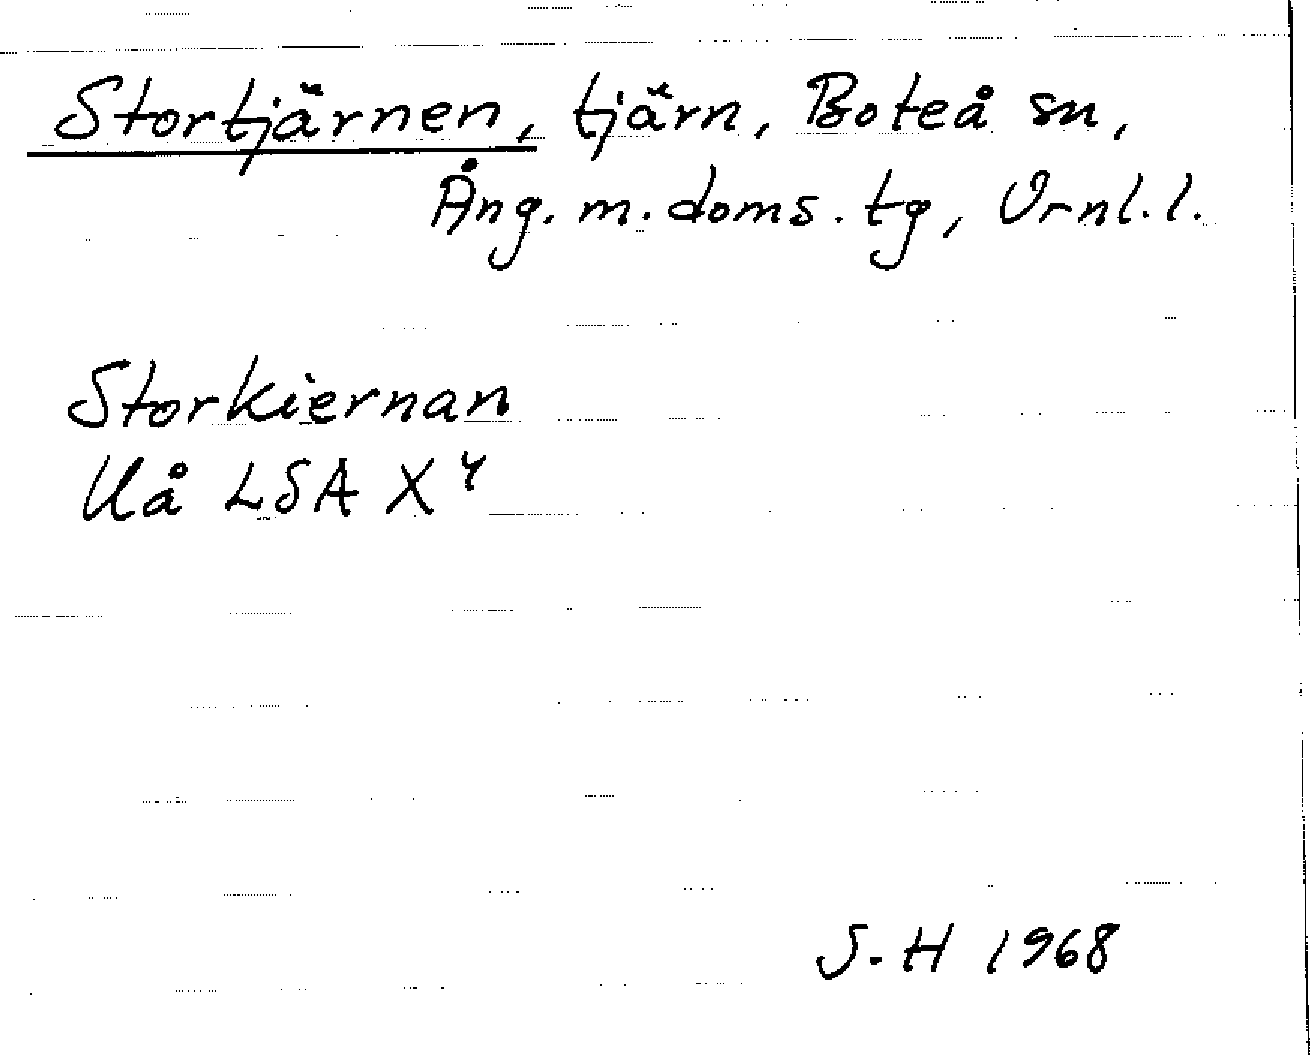 Stortjärnen, tjärn, Boteå sn,
Ång. m. doms. tg, Vrnl. l.
Storkiernan
Uå LSA X 4
S.H 1968